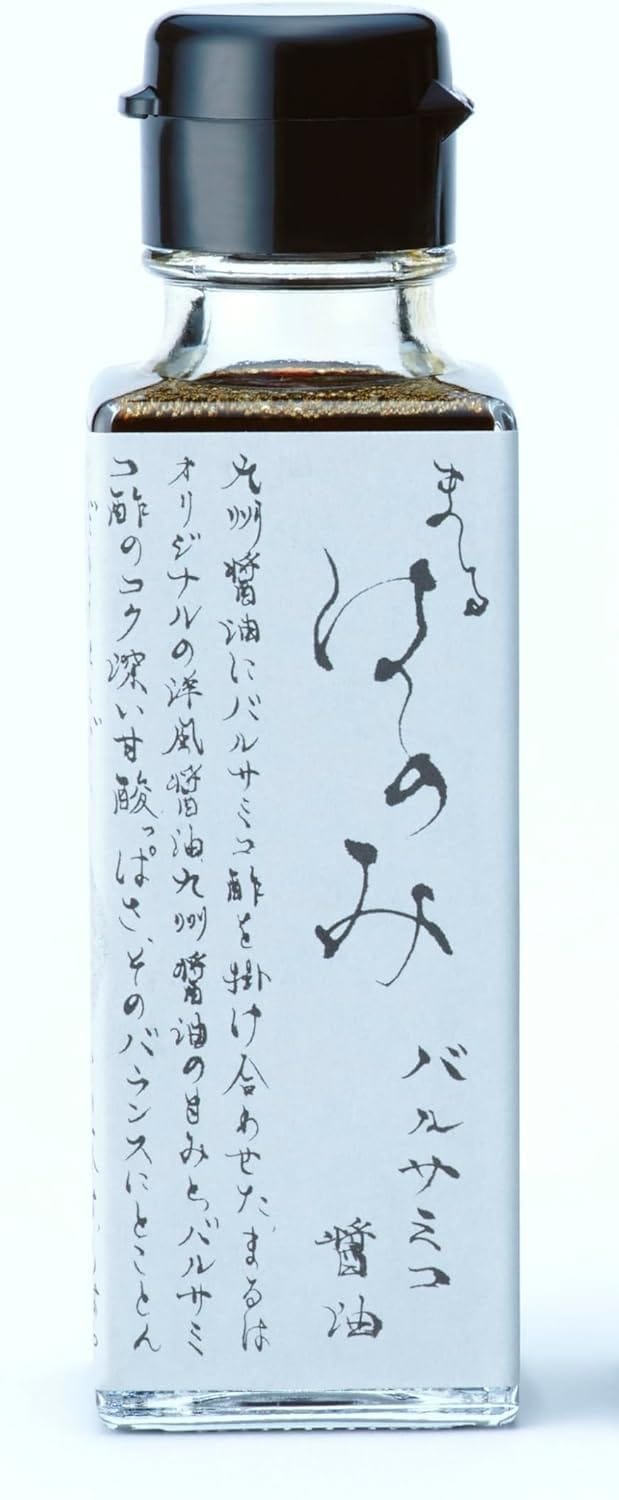 まる
はのみ
バルサミコ
醤油
九州醤油にバルサミコ酢を掛け合わせた、まるは
オリジナルの洋風醤油。九州醤油の甘みと、バルサミ
コ酢のコク深い甘酸っぱさ、そのバランスにとことん